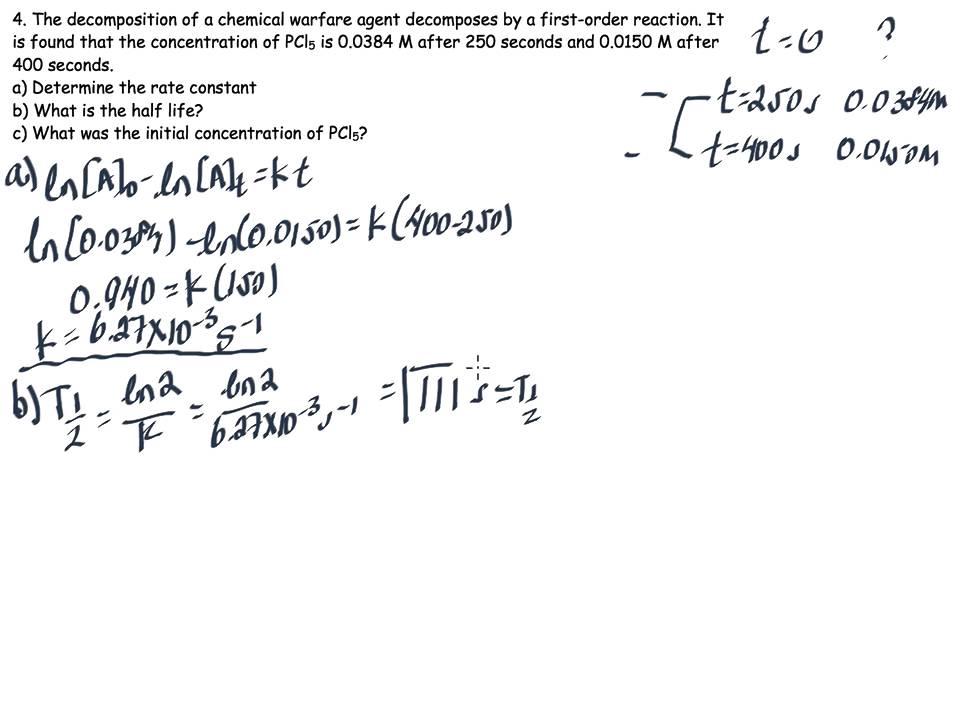 4. The decomposition of a chemical warfare agent decomposes by a first-order reaction. It
is found that the concentration of PCl₅ is 0.0384 M after 250 seconds and 0.0150 M after
400 seconds.
a) Determine the rate constant
b) What is the half life?
c) What was the initial concentration of PCl₅?
t=0 ?
- t=250s 0.0384M
- t=400s 0.0150M
a) ln[A]₀-ln[A]t=kt
ln(0.0384)-ln(0.0150)=k(400-250)
0.940=k(150)
k=6.27x10⁻³s⁻¹
b) T1/2=ln2/k=ln2/6.27x10⁻³s⁻¹=111s=T1/2